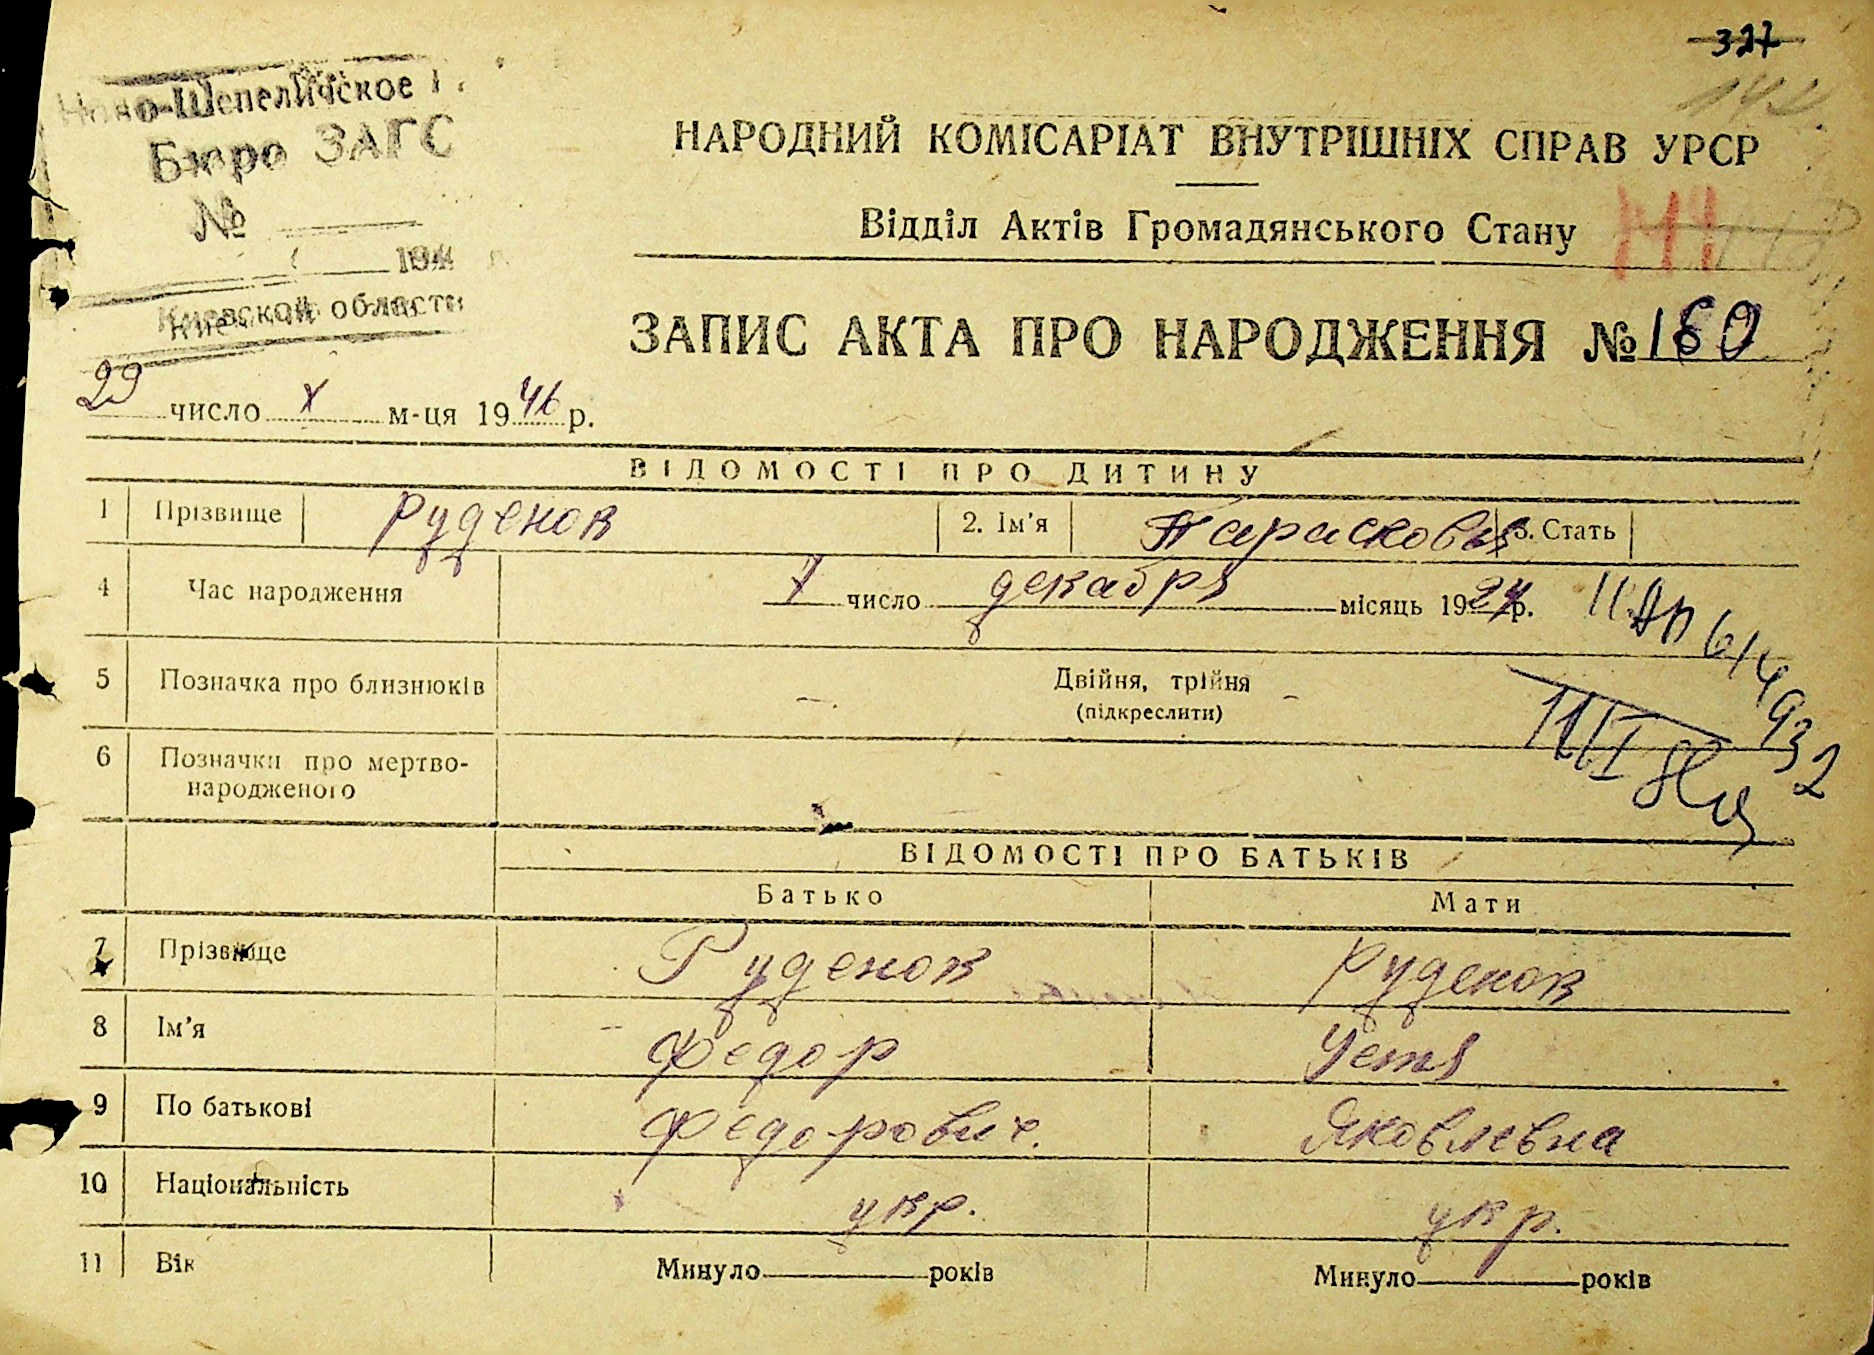 327
142
Ново-Шепеличское
Бюро ЗАГС
№
194
Киевской области
НАРОДНИЙ КОМІСАРІАТ ВНУТРІШНІХ СПРАВ УРСР
Відділ Актів Громадянського Стану
ЗАПИС АКТА ПРО НАРОДЖЕННЯ № 180
29 число X м-ця 1946 р.
ВІДОМОСТІ ПРО ДИТИНУ
1 Прізвище Руденок 2. Ім'я Парасковья 3. Стать
4 Час народження 7 число декабря місяць 1924 р.
5 Позначка про близнюків Двійня, трійня
(підкреслити)
6 Позначки про мертво-
народженого
ВІДОМОСТІ ПРО БАТЬКІВ
Батько Мати
7 Прізвище Руденок Руденок
8 Ім'я Федор Устя
9 По батькові Федорович. Яковлевна
10 Національність укр. укр.
11 Вік Минуло років Минуло років